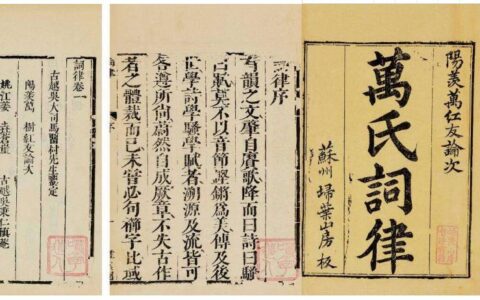 陽羨萬紅友論次
萬氏詞律
蘇州埽葉山房板
律序
有韻之文肇自賡歌降而曰詩曰騷
曰賦莫不以音節鏗鏘爲美傳及後
世學詩學騷學賦者溯源及流皆可
各遵所尙蔚然自成厥章不失古作
者之體裁而已未嘗必句櫛字比域
詞律卷一
古越吳大司馬留村先生鑒定
陽羨萬 樹紅友論次
姚江姜 垚蒼崖 古越吳秉仁慎菴